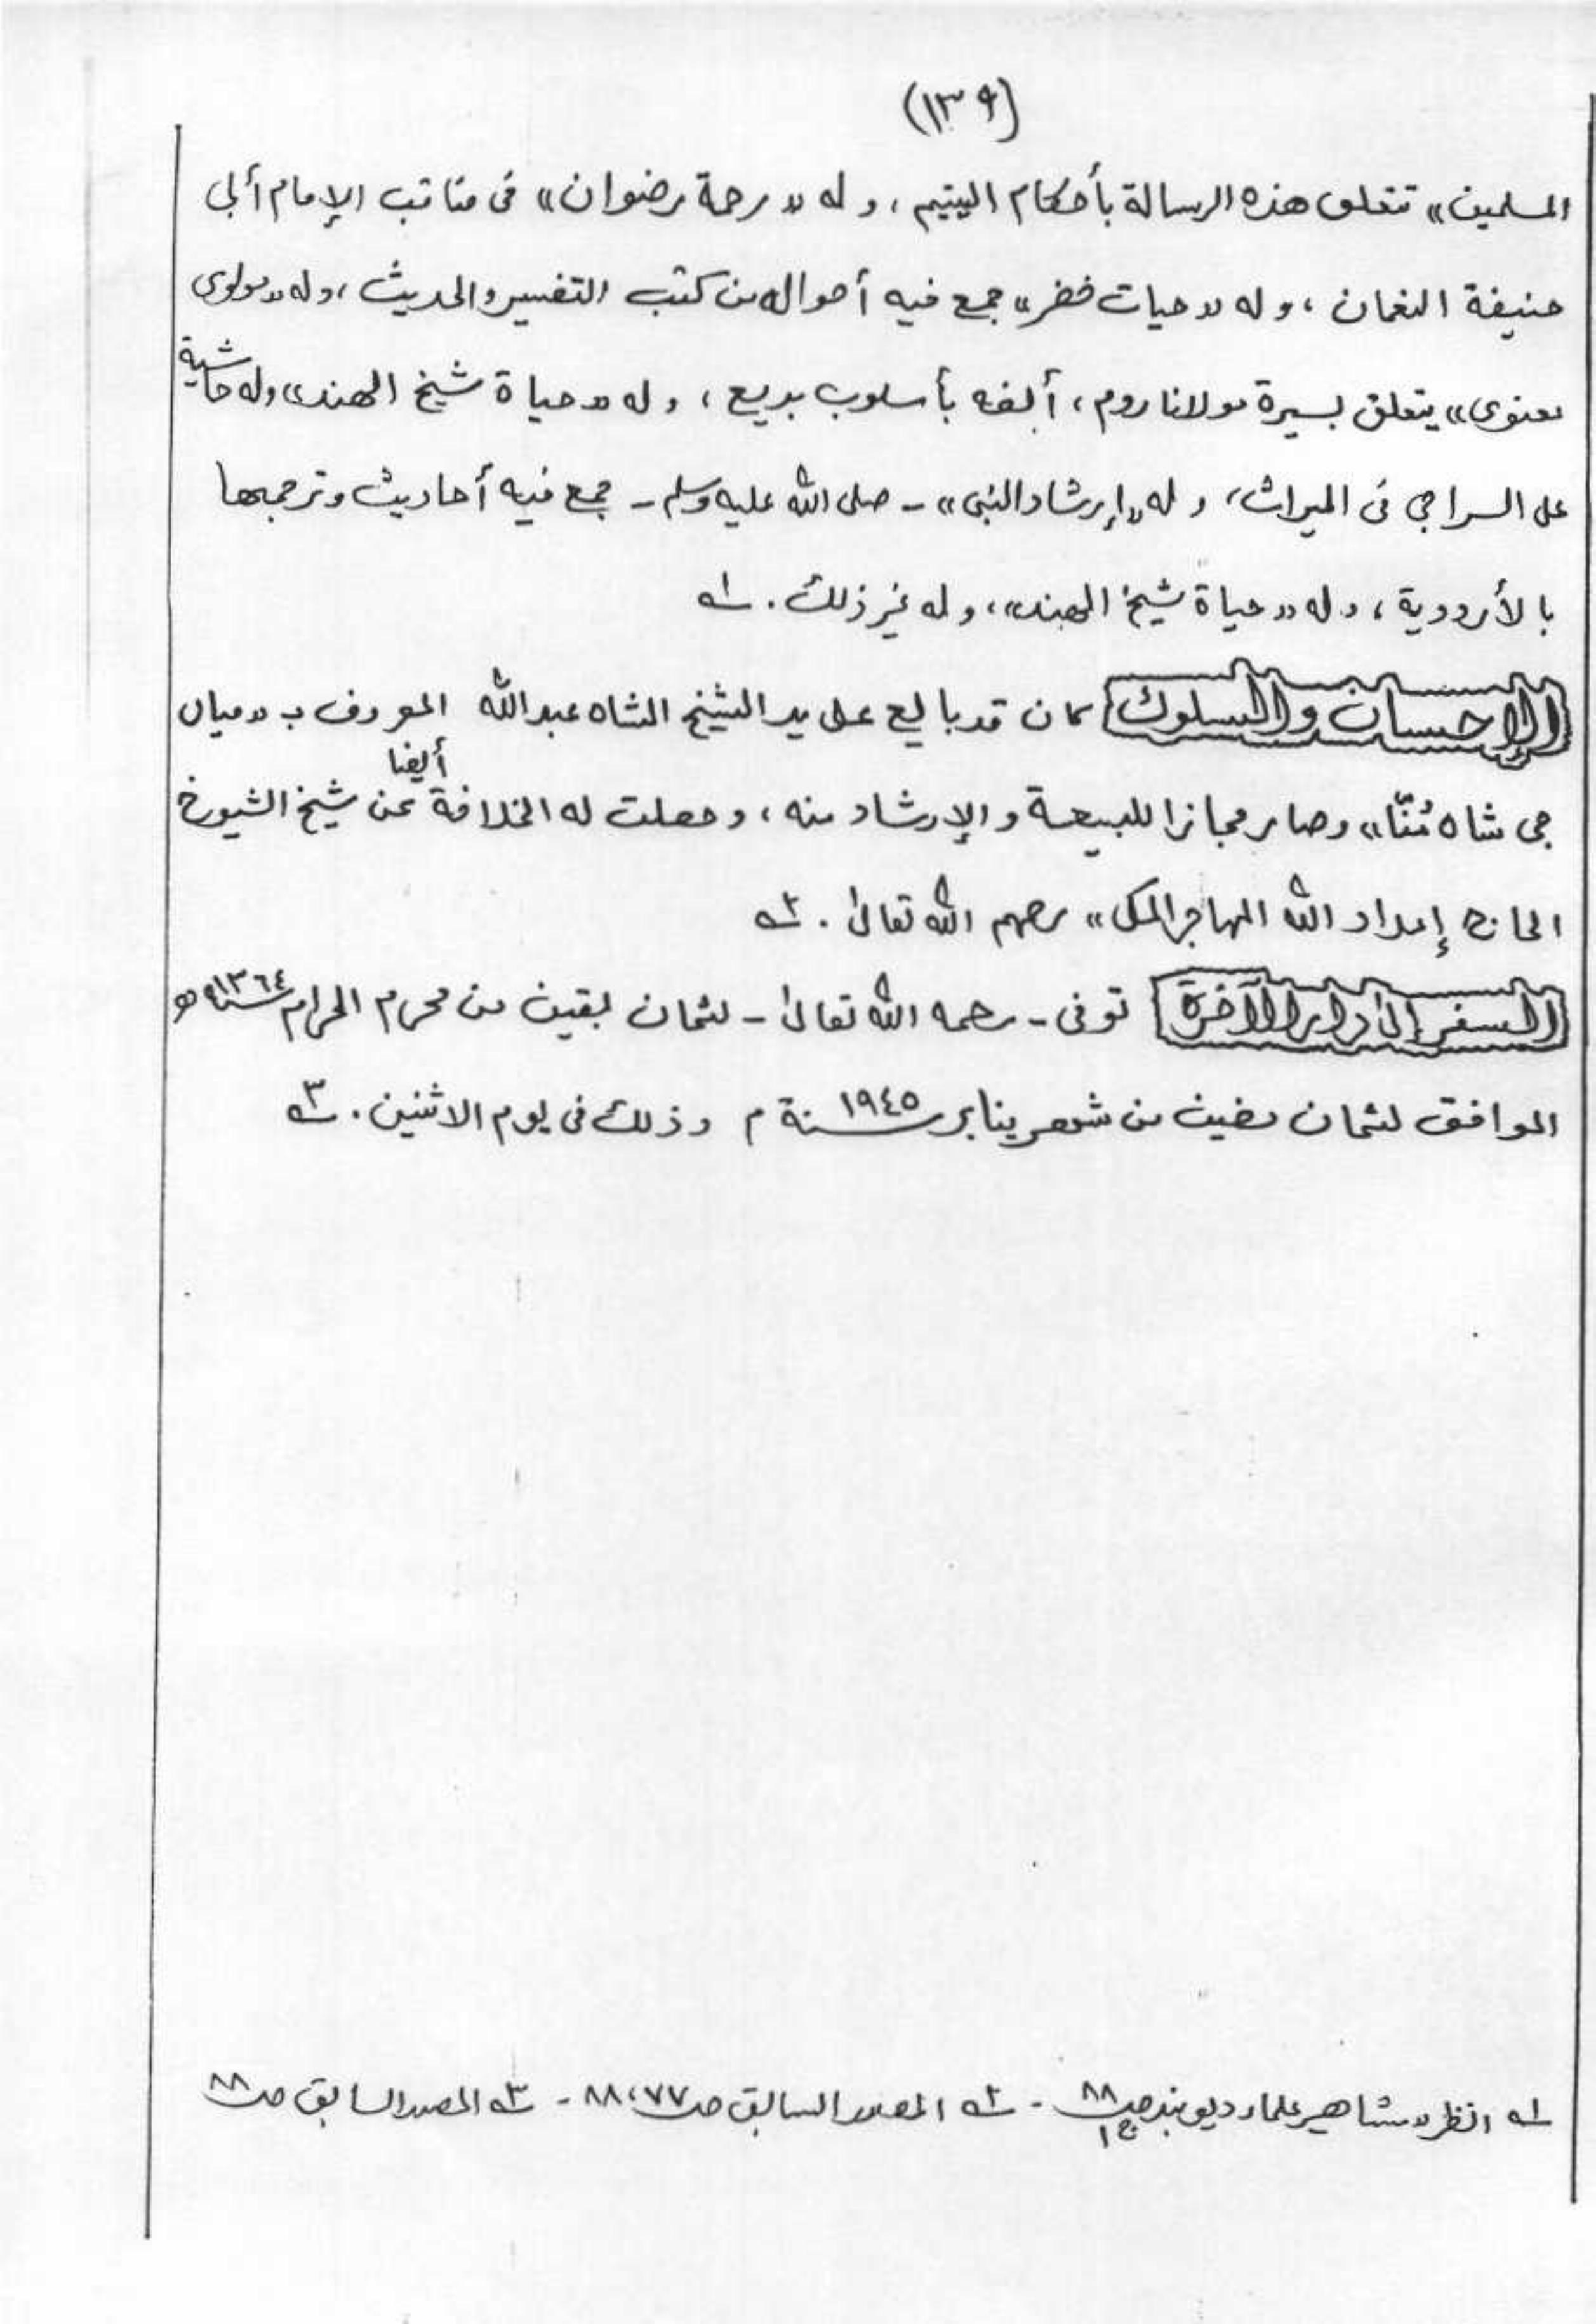 (١٣٩)
المسلمين» تتعلق هذه الرسالة بأحكام اليتيم، و له «رحمة رضوان» فى مناقب الإمام أبى
حنيفة النعمان، و له «حيات خضر» جمع فيه أحواله من كتب التفسير والحديث، وله «مولوى
معنوى» يتعلق بسيرة مولانا روم، ألفه بأسلوب بديع، و له «حياة شيخ الهند» وله حاشية
على السراجى فى الميراث، و له «إرشاد النبى» - صلى الله عليه وسلم - جمع فيه أحاديث وترجمها
بالأردوية، وله «حياة شيخ الهند»، و له غير ذلك. ١ه
الإحسان والسلوك كان قد بايع على يد الشيخ الشاه عبد الله المعروف ب «ميان
جى شاه مُنّا» وصار مجازا للبيعة و الإرشاد منه، وحصلت له الخلافة أيضا عن شيخ الشيوخ
الحاج إمداد الله المهاجر المكى» رحمهم الله تعالىٰ. ٢ه
السفر إلىٰ دار الآخرة توفى - رحمه الله تعالىٰ - لثمان بقين من محرم الحرام سنة ١٣٦٤ه
الموافق لثمان مضين من شهر يناير سنة ١٩٤٥م وذلك فى يوم الاثنين. ٣ه
١ه انظر «مشاهير علماء ديوبند ص ٨٨ ج١ - ٢ه المصدر السابق ص ٧٧، ٨٨ - ٣ه المصدر السابق ص ٨٨